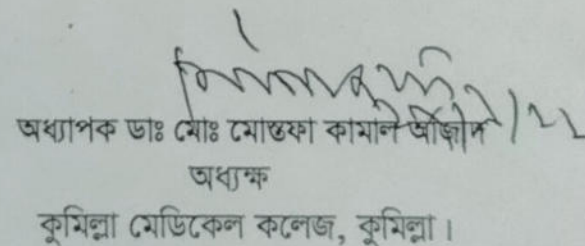 অধ্যাপক ডাঃ মোঃ মোস্তফা কামাল আজাদ
অধ্যক্ষ
কুমিল্লা মেডিকেল কলেজ, কুমিল্লা।